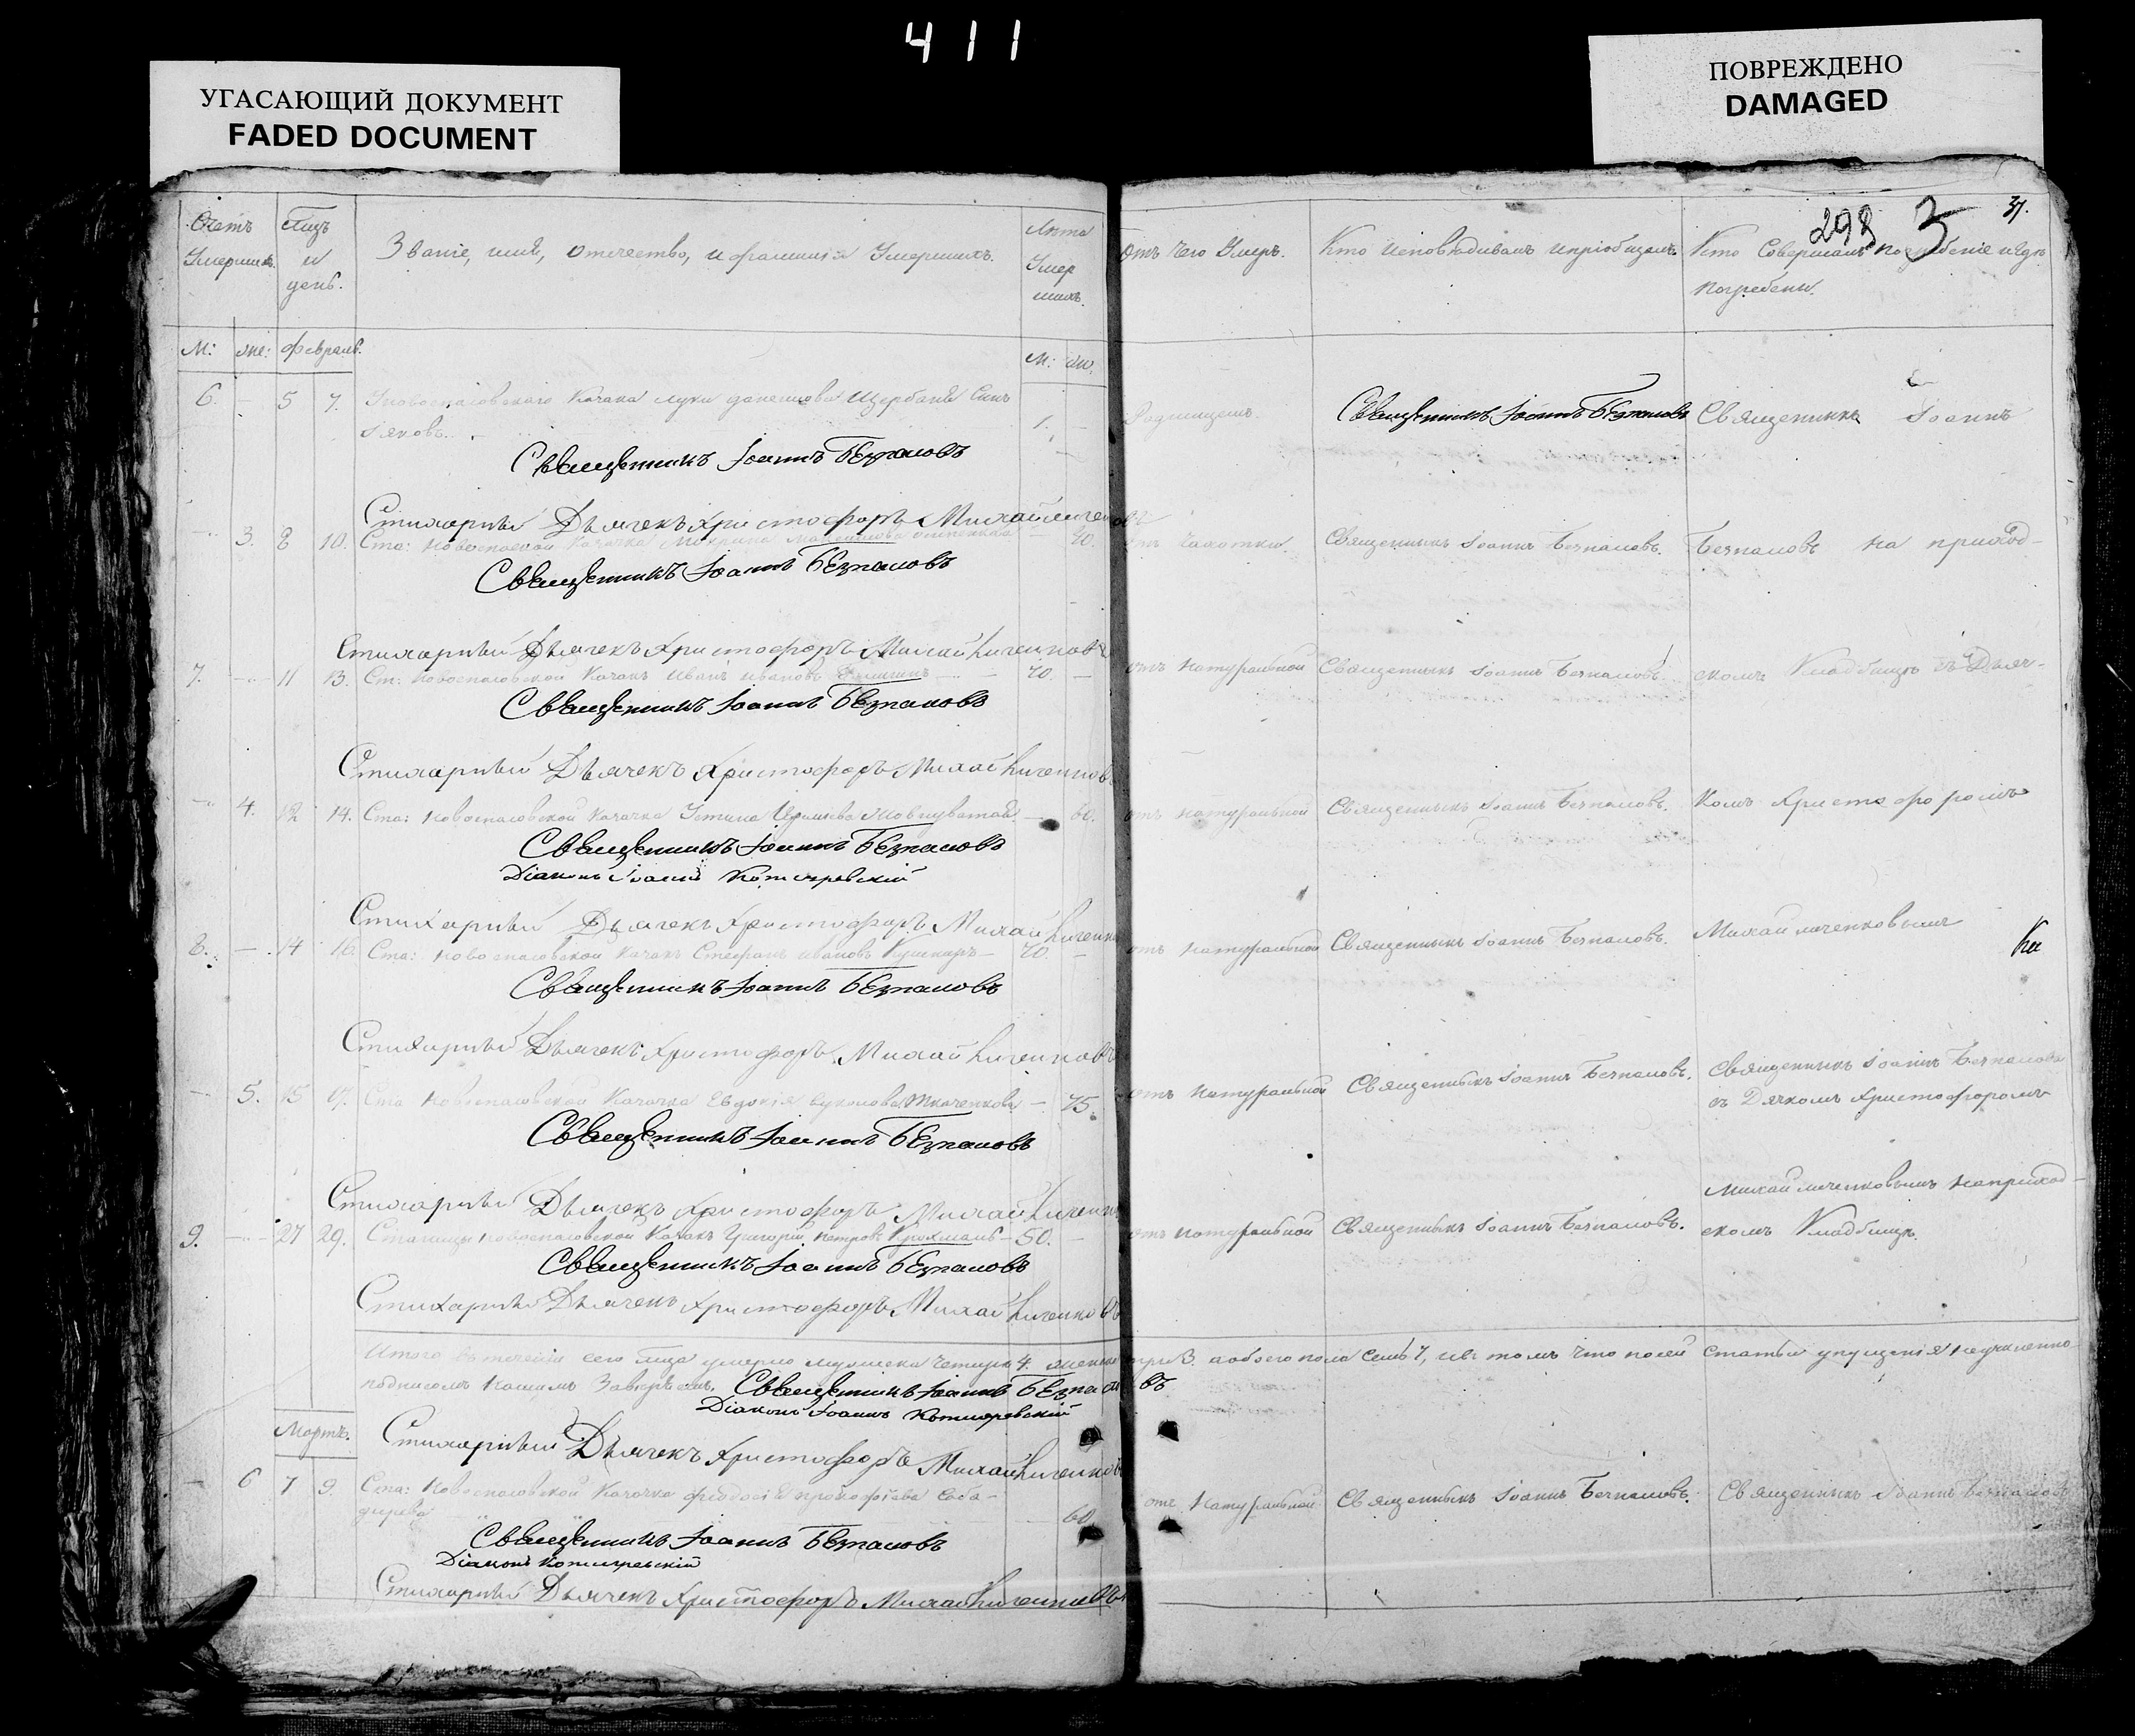 411
УГАСАЮЩИЙ ДОКУМЕНТ
FADED DOCUMENT
ПОВРЕЖДЕНО
DAMAGED
298 3 31.
Счетъ Умершихъ.
Мцъ и день.
Званіе, имя, отечество, и фамилия Умершихъ.
Лета Умер шихъ.
Отъ чего Умеръ.
Кто исповѣдывалъ и пріобщалъ.
Кто Совершалъ погребеніе и гдѣ погребены.
М: же: Февраль. М: же.
6. – 5 7. Новоспасовскаго Казака Луки Щербаня Сынъ
Яковъ. 1. – Родимцемъ. Священникъ Іоаннъ Безпаловъ Священникъ Іоаннъ
Священникъ Іоаннъ Безпаловъ
Стихарный Дьячекъ Христофоръ Михайличенковъ
– 3. 8 10. Ста: Новоспасовской Казачка 40. отъ чахотки. Священникъ Іоаннъ Безпаловъ. Безпаловъ на приход-
Священникъ Іоаннъ Безпаловъ
Стихарный Дьячекъ Христофоръ Михайличенковъ
7. – 11 13. Ст: Новоспасовской Казакъ Иванъ Ивановъ 70. – отъ натуральной Священникъ Іоаннъ Безпаловъ. скомъ Кладбищѣ съ Дьяч-
Священникъ Іоаннъ Безпаловъ
Стихарный Дьячекъ Христофоръ Михайличенковъ
– 4. 12 14. Ста: Новоспасовской Казачка Устина – 60. отъ натуральной Священникъ Іоаннъ Безпаловъ. Комъ Христофоромъ
Священникъ Іоаннъ Безпаловъ
Діаконъ Іоаннъ Котляревскій
Стихарный Дьячекъ Христофоръ Михайличенко
8. – 14 16. Ста: Новоспасовской Казакъ Стефанъ Ивановъ Кушниръ – 70. – отъ натуральной Священникъ Іоаннъ Безпаловъ. Михайличенковымъ
Священникъ Іоаннъ Безпаловъ
Стихарный Дьячекъ Христофоръ Михайличенковъ
– 5. 15 17. Ста Новоспасовской Казачка Евдокія Ткаченкова – 75. отъ натуральной Священникъ Іоаннъ Безпаловъ. Священникъ Іоаннъ Безпаловъ
съ Дячкомъ Христофоромъ
Священникъ Іоаннъ Безпаловъ
Стихарный Дьячекъ Христофоръ Михайличенко
Михайличенковымъ на приход-
9. – 27 29. Станицы Новоспасовской Казакъ Григорій Петровъ Крохмаль – 50. – отъ натуральной Священникъ Іоаннъ Безпаловъ. скомъ Кладбищѣ.
Священникъ Іоаннъ Безпаловъ
Стихарный Дьячекъ Христофоръ Михайличенковъ
Итого въ теченіи сего Мца умерло мужеска четыре 4. женска три 3. а обоего пола семь 7, и въ томъ что по сей статьи упущенія неучиненно
подписомъ нашимъ Заверяемъ. Священникъ Іоаннъ Безпаловъ
Діаконъ Іоаннъ Котляревскій
Мартъ.
Стихарный Дьячекъ Христофоръ Михайличенков
– 6 7 9. Ста: Новоспасовской Казачка Феодосія Прокофіева Саба-
дирева 60. отъ Натуральной Священникъ Іоаннъ Безпаловъ. Священникъ Іоаннъ Безпаловъ
Священникъ Іоаннъ Безпаловъ
Діаконъ Котляревскій
Стихарный Дьячекъ Христофоръ Михайличенковъ